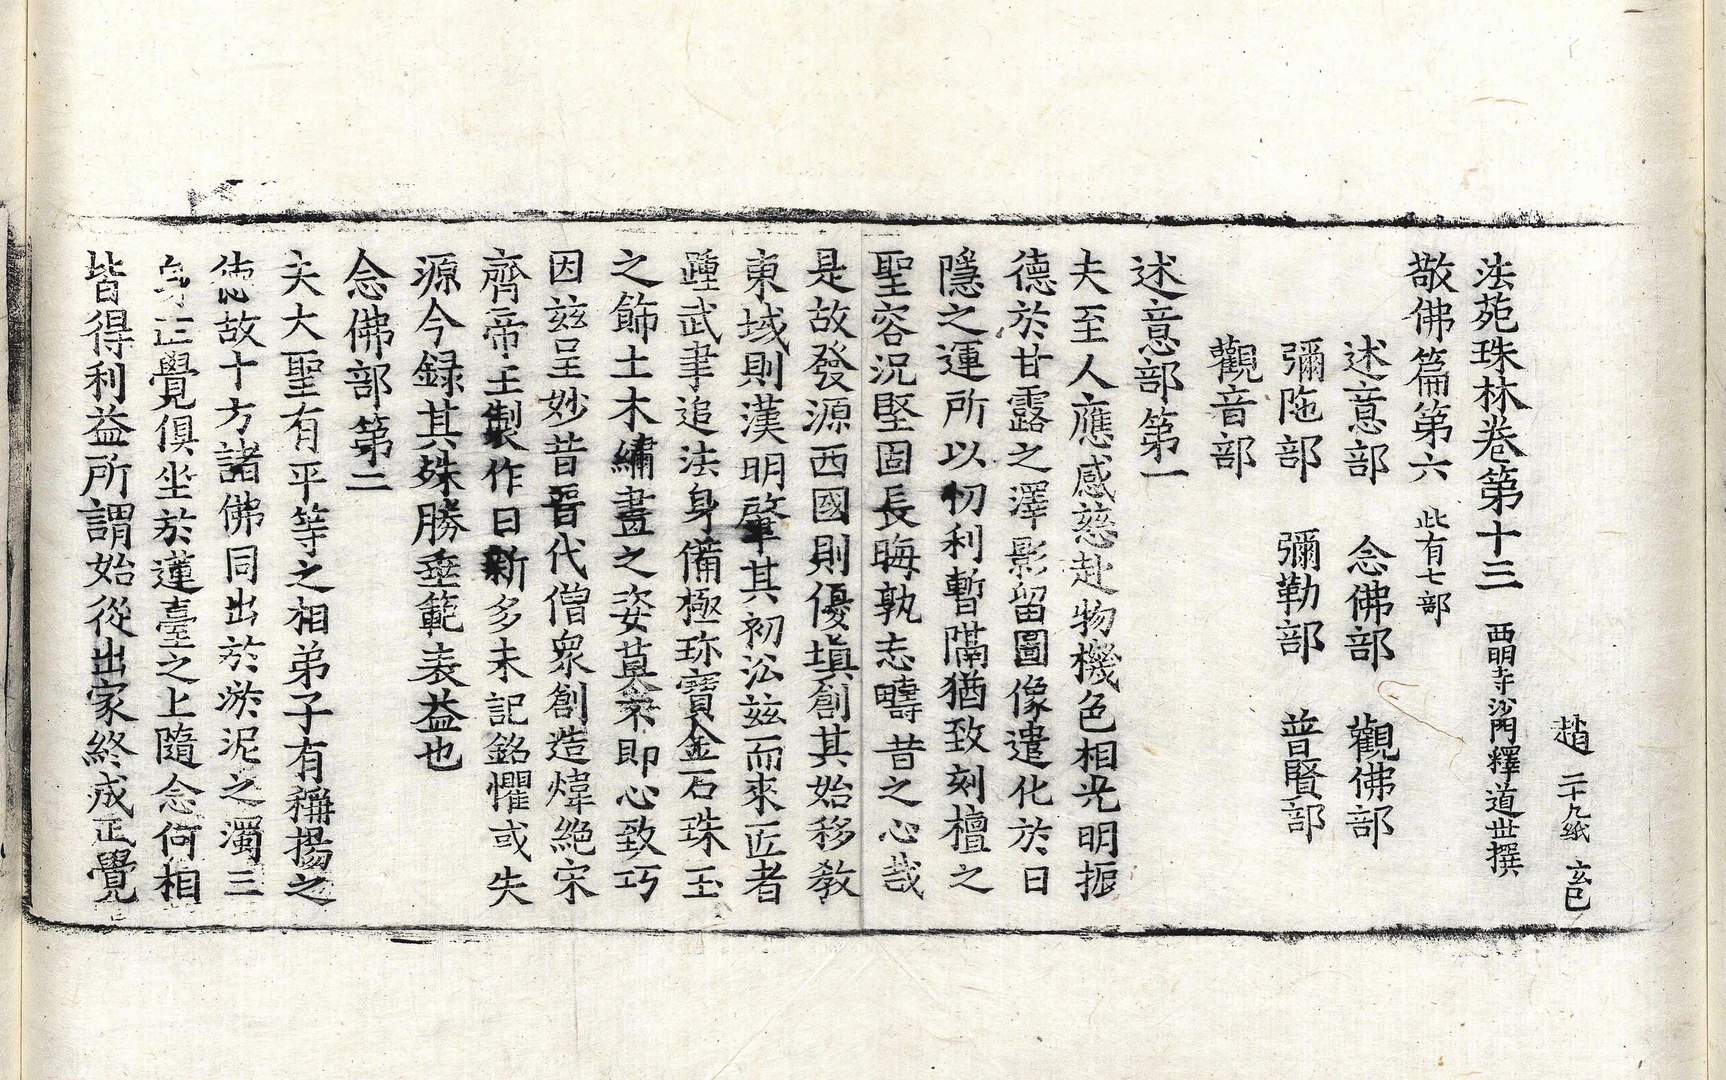 趙 二十九紙 玄巳
法苑珠林卷第十三 西明寺沙門釋道世撰
敬佛篇第六 此有七部
述意部 念佛部 觀佛部
彌陁部 彌勒部 普賢部
觀音部
述意部第一
夫至人應感慈赴物機色相光明振
德於甘露之澤影留圖像遣化於日
隱之運所以忉利暫隔猶致刻檀之
聖容況堅固長晦孰志疇昔之心哉
是故發源西國則優塡創其始移教
東域則漢明肇其初㳂兹而來匠者
踵武聿追法身備極珎寶金石珠玉
之飾土木繡畫之姿莫不卽心致巧
因兹呈妙昔晉代僧衆創造煒絶宋
齊帝王製作日新多未記銘懼或失
源今録其殊勝垂範表益也
念佛部第二
夫大聖有平等之相弟子有稱揚之
德故十方諸佛同出於淤泥之濁三
身正覺俱坐於蓮臺之上隨念何相
皆得利益所謂始從出家終成正覺